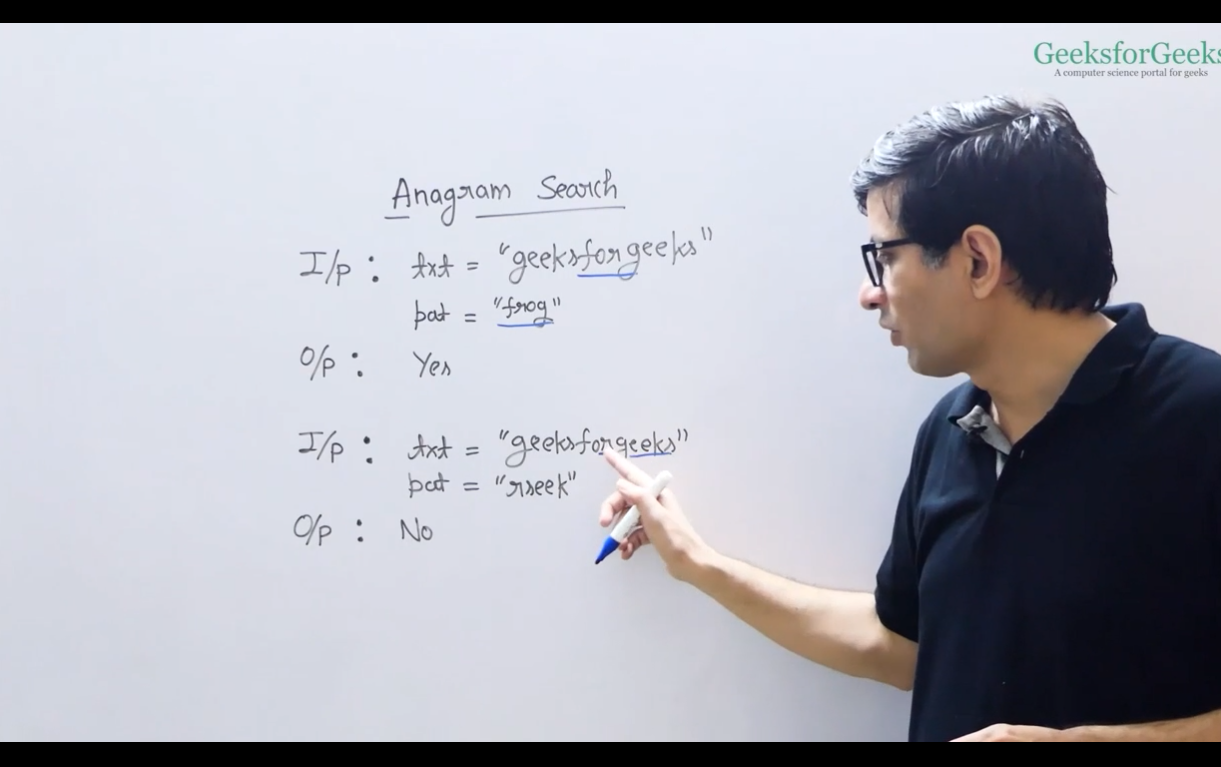 GeeksforGeeks
A computer science portal for geeks
Anagram Search
I/p : txt = "geeksforgeeks"
pat = "frog"
O/p : Yes
I/p : txt = "geeksforgeeks"
pat = "rseek"
O/p : No